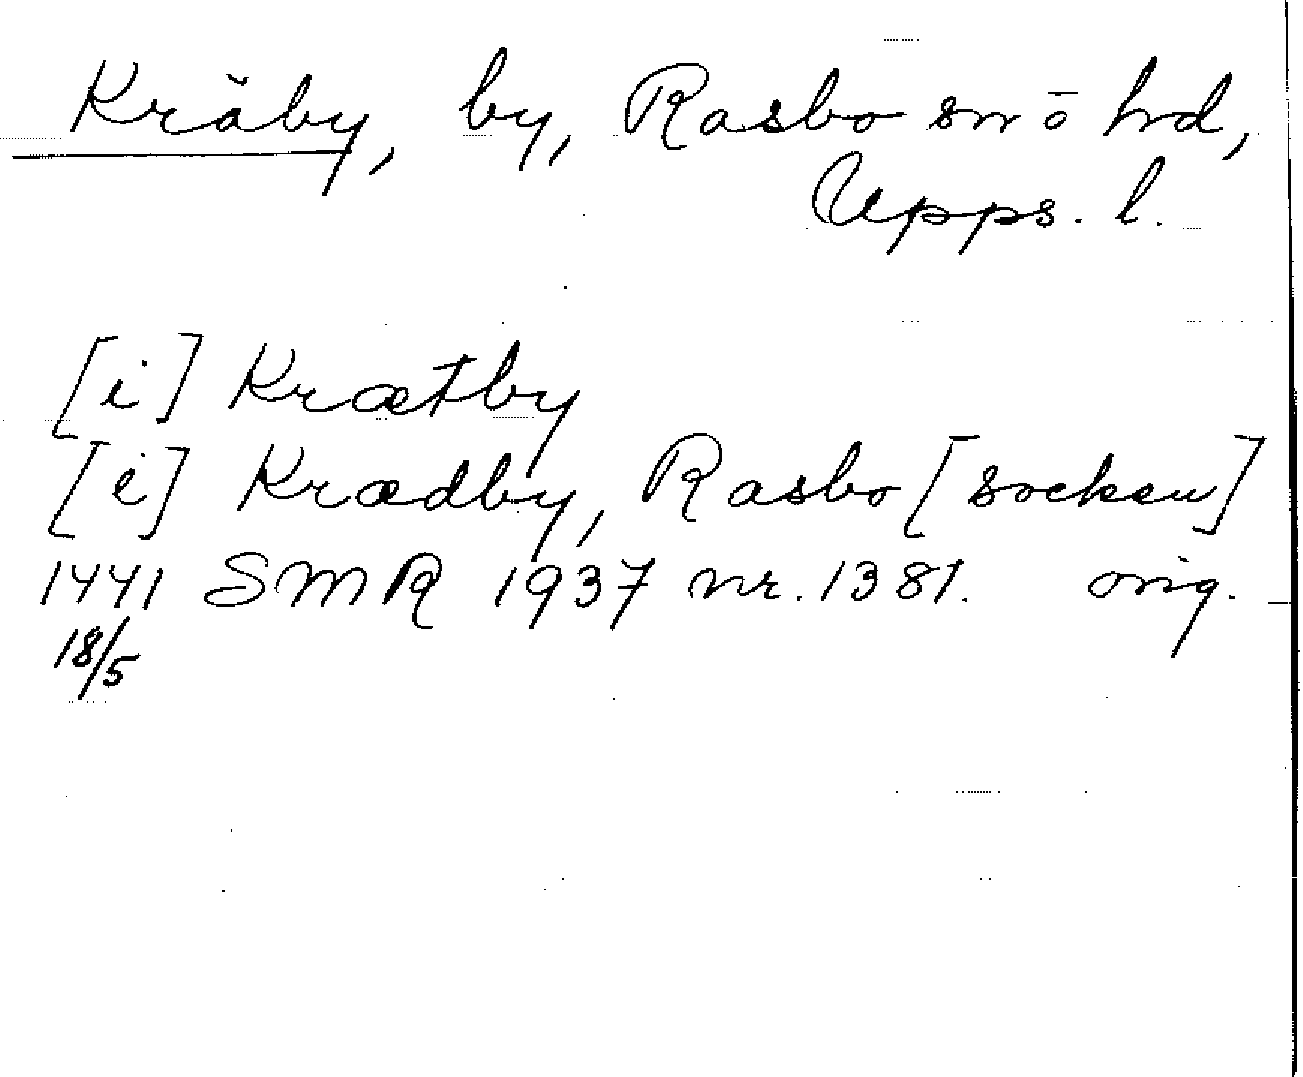 Kräby, by, Rasbo sn o hd,
Upps. l.
[i] Krætby
[i] Krædby, Rasbo [socken]
1441 SMR 1937 nr. 1381. orig.
18/5